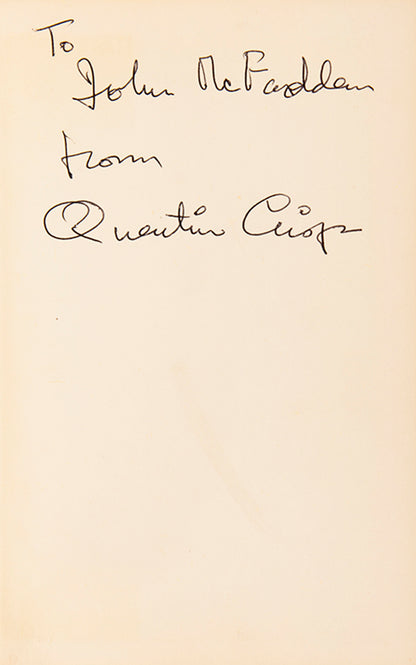 To
John McFadden
from
Quentin Crisp